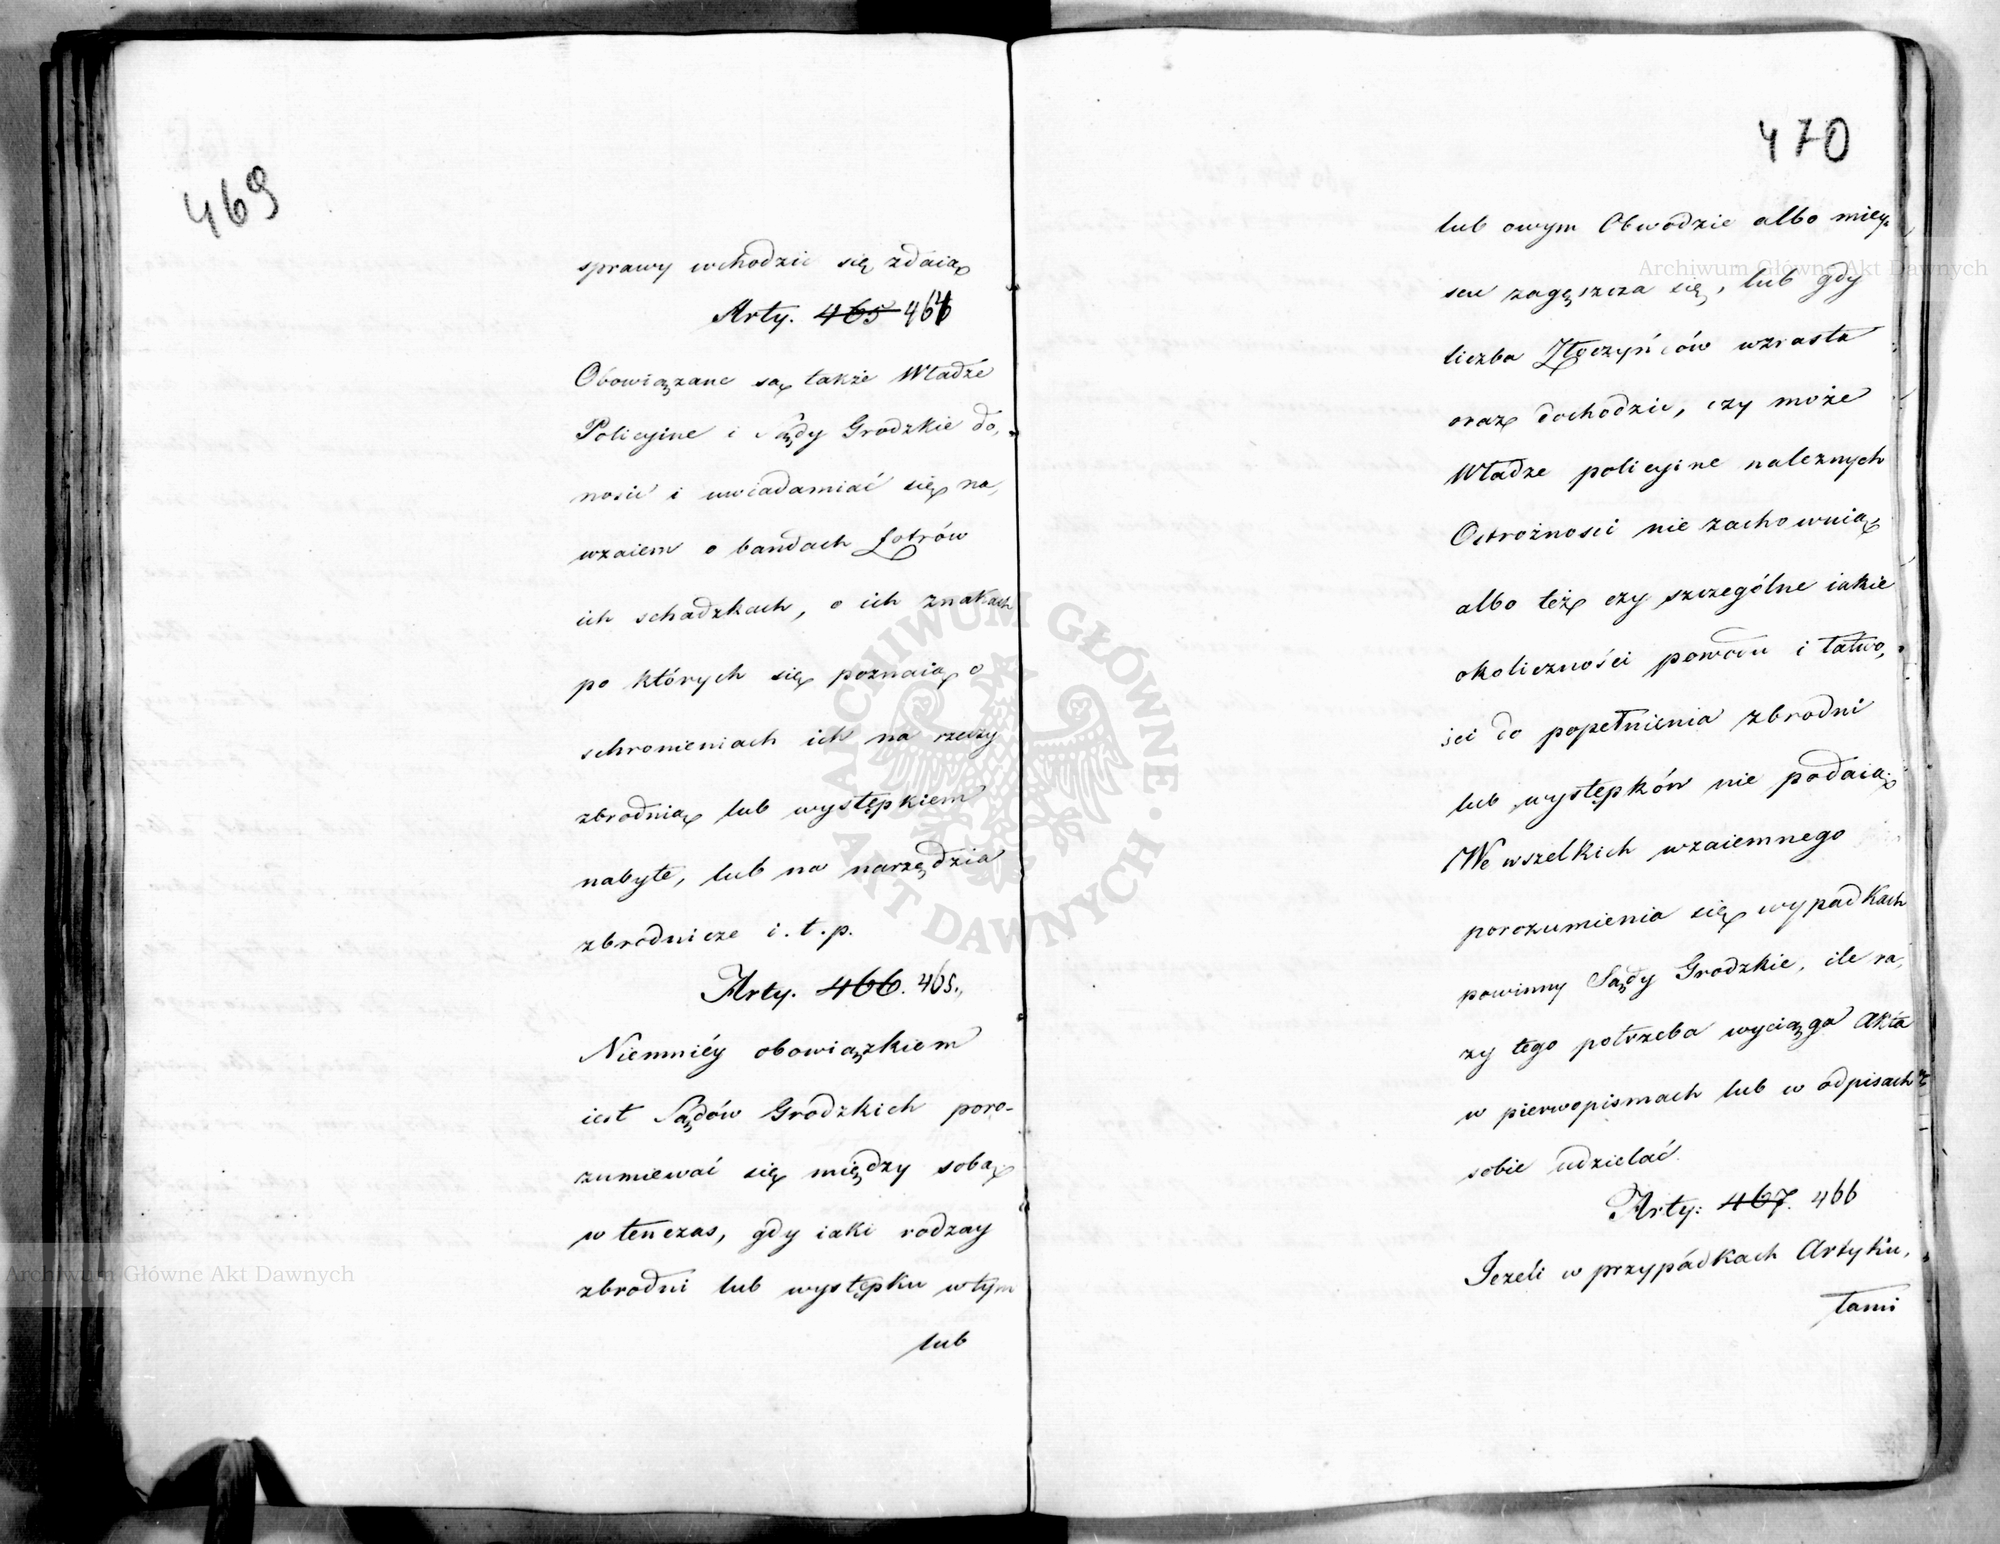 469
sprawy wchodzić się zdaią
Arty. 465 464
Obowiązane są także Władze
Policyine i Sądy Grodzkie do,
nosić i uwiadamiać się na,
wzaiem o bandach Łotrów
ich schadzkach, o ich znakach
po których się poznaią o
schronieniach ich na rzeczy
zbrodnią lub występkiem
nabyte, lub na narzędzia
zbrodnicze i. t. p.
Arty. 466. 465.
Niemniéy obowiązkiem
iest Sądów Grodzkich poro-
zumiewać się między sobą
w tenczas, gdy iaki rodzay
zbrodni lub występku w tym
lub
470
lub owym Obwodzie albo miey,
scu zagęszcza się, lub gdy
liczba Złoczyńców wzrasta
oraz dochodzić, czy może
Władze policyine należnych
Ostrożnosci nie zachowuią
albo też czy szczególne iakie
okoliczności powodu i łatwo,
ści do popełnienia zbrodni
lub występków nie podaią.
We wszelkich wzaiemnego
porozumienia się wypadkach
powinny Sądy Grodzkie, ile ra,
zy tego potrzeba wyciąga Akta
w pierwopismach lub w odpisach
sobie udzielać.
Arty: 467. 466
Jeżeli w przypadkach Artyku,
łami
Archiwum Główne Akt Dawnych
Archiwum Główne Akt Dawnych
ARCHIWUM GŁÓWNE AKT DAWNYCH